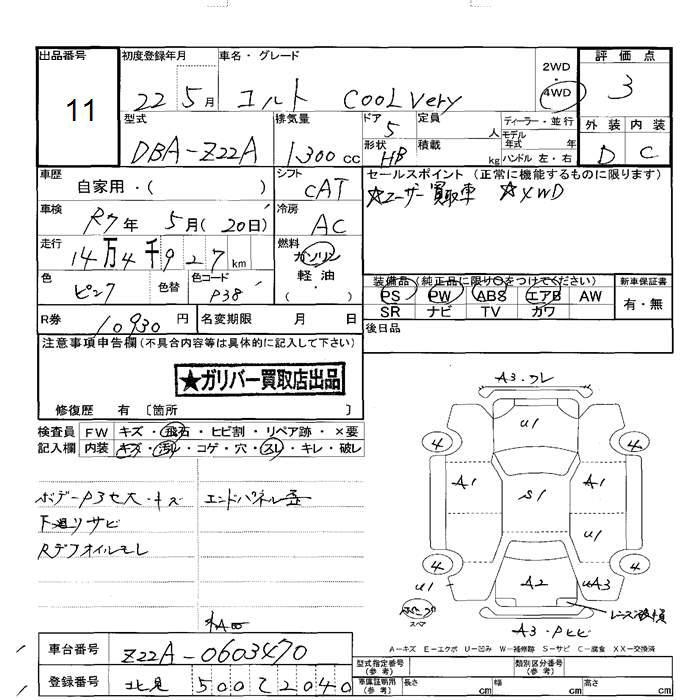 出品番号 初度登録年月 車名・グレード 2WD・4WD 評価点
11 22 5月 コルト COOL Very 3
型式 排気量 ドア 定員 人 ディーラー・並行
DBA-Z22A 1300cc 5 モデル年式 年
形状 積載 kg ハンドル 左・右
HB
外装 内装
D C
車歴 シフト セールスポイント(正常に機能するものに限ります)
自家用・( ) CAT ☆ユーザー買取車 ☆4WD
車検 冷房
R7年 5月(20日) AC
走行 燃料
14万4千927km ガソリン
軽油
・( )
色 色替 色コード
ピンク P38
装備品(純正品に限り○をつけてください) 新車保証書
PS PW ABS エアB AW 有・無
SR ナビ TV カワ
R券 10930円 名変期限 月 日
後日品
注意事項申告欄(不具合内容等は具体的に記入して下さい)
★ガリバー買取店出品
修復歴 有 〔箇所 〕
検査員 FW キズ・飛石・ヒビ割・リペア跡・×要
記入欄 内装 キズ・汚れ・コゲ・穴・スレ・キレ・破レ
エンドパネル歪
下廻リサビ
Rデフオイルモレ
A3.ワレ
U1
4 4
A1 S1 A1
U1
4 4
U1 A2 UA3
スペア
A3.Pヒビ
A=キズ E=エクボ U=凹み W=補修跡 S=サビ C=腐食 XX=交換済
車台番号 Z22A-0603470
型式指定番号(参考) 類別区分番号(参考)
登録番号 北見 500 2040
車庫証明用(参考) 長さ cm 幅 cm 高さ cm